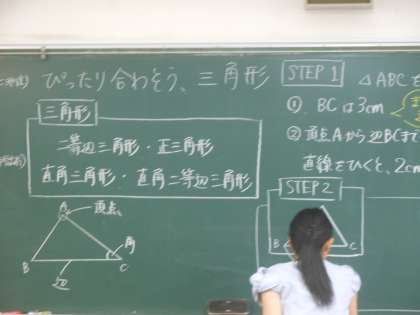 ぴったり合わそう、三角形
三角形
二等辺三角形・正三角形
直角三角形・直角二等辺三角形
A 頂点
角
B 辺 C
STEP 1
△ABCを
① BCは3cm
② 頂点Aから辺BCまで
直線をひくと、2cm
STEP 2
B C